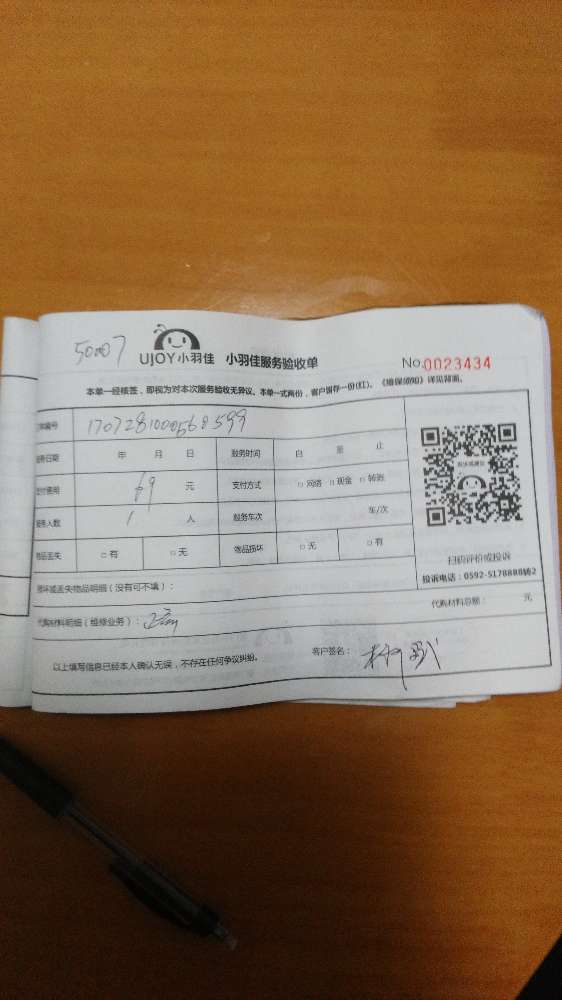 50007
UJOY小羽佳 小羽佳服务验收单 No.0023434
本单一经核签，即视为对本次服务验收无异议。本单一式两份，客户留存一份(红)。《维保须知》详见背面。
订单编号 1707281000568599
服务日期 年 月 日 服务时间 自 至 止
支付费用 69 元 支付方式 □ 网络 □ 现金 □ 转账
服务人数 1 人 服务车次 车/次
物品丢失 □ 有 □ 无 物品损坏 □ 无 □ 有
扫码评价或投诉
投诉电话：0592-5178888转2
损坏或丢失物品明细（没有可不填）：
代购材料明细（维修业务）： 代购材料总额： 元
以上填写信息已经本人确认无误，不存在任何争议纠纷。 客户签名：